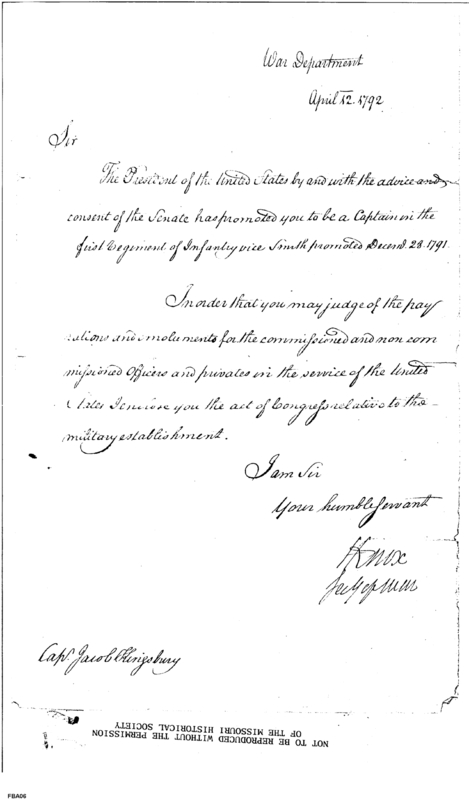 War Department
April 12. 1792
Sir
The President of the United States by and with the advice and
consent of the Senate has promoted you to be a Captain in the
first Regiment of Infantry vice Smith promoted Decem.r 28. 1791.
In order that you may judge of the pay
rations and emoluments for the commissioned and non com
missioned Officers and privates in the service of the United
States I enclose you the act of Congress relative to the
military establishment.
I am Sir
Your humble Servant
HKnox
Secy of War
Cap.t Jacob Kingsbury
NOT TO BE REPRODUCED WITHOUT THE PERMISSION
OF THE MISSOURI HISTORICAL SOCIETY
FBA06